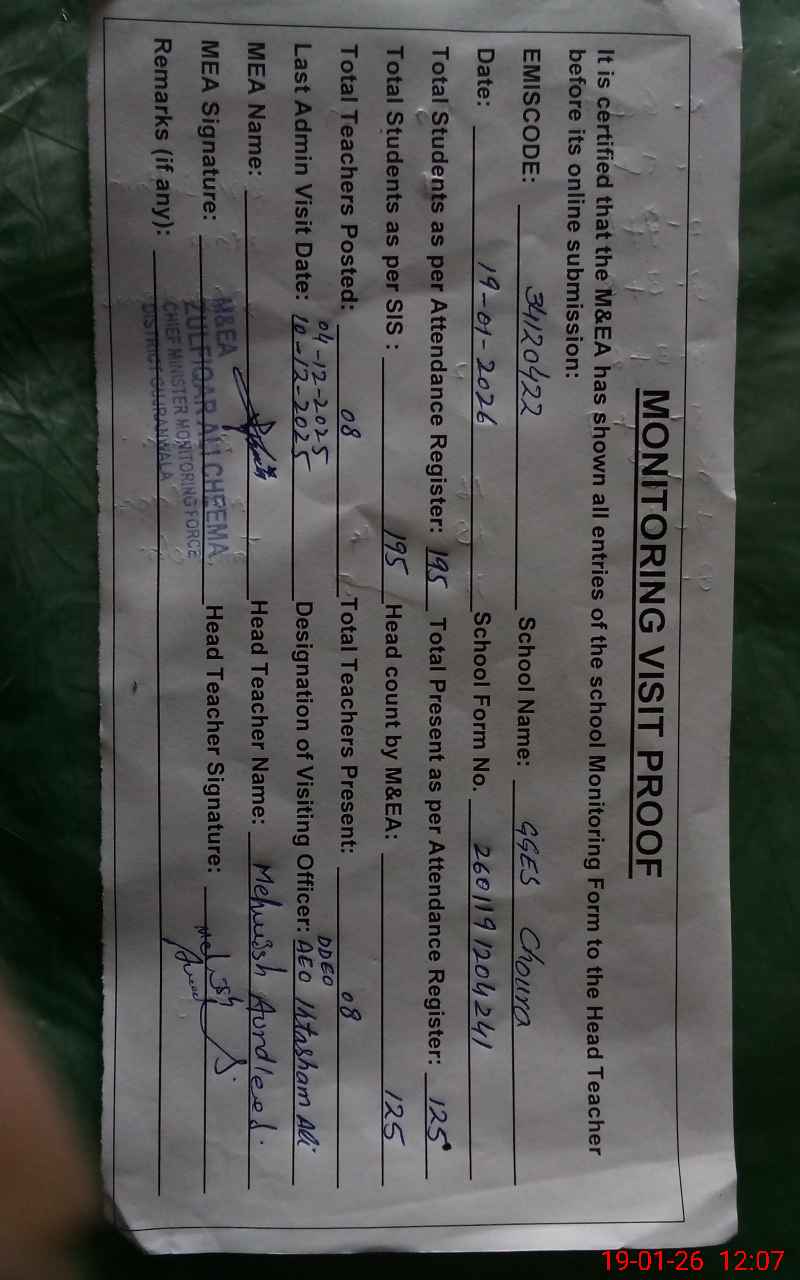 MONITORING VISIT PROOF
It is certified that the M&EA has shown all entries of the school Monitoring Form to the Head Teacher
before its online submission:
EMISCODE: 34120422 School Name: GGES Choura
Date: 19-01-2026 School Form No. 2601191204241
Total Students as per Attendance Register: 195 Total Present as per Attendance Register: 125
Total Students as per SIS : 195 Head count by M&EA: 125
Total Teachers Posted: 08 Total Teachers Present: 08
04-12-2025 DDEO
Last Admin Visit Date: 10-12-2025 Designation of Visiting Officer: AEO Ihtasham Ali
MEA Name: Head Teacher Name: Mehwish
MEA Signature: Head Teacher Signature:
M&EA
ZULFIQAR ALI CHEEMA
CHIEF MINISTER MONITORING FORCE
DISTRICT GUJRANWALA
Remarks (if any):
19-01-26 12:07